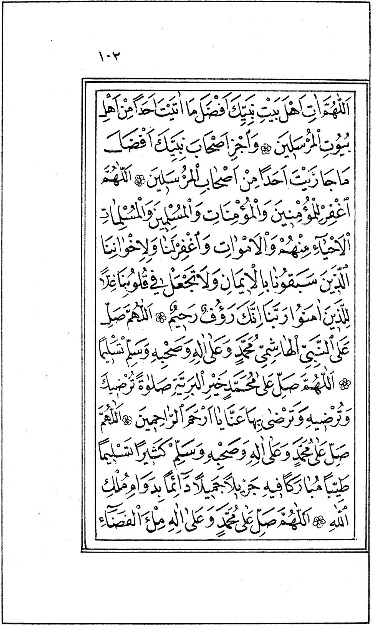 ١٠٢
اَللّٰهُمَّ اٰتِ اَهْلَ بَيْتِ نَبِيِّكَ اَفْضَلَ مَا اٰتَيْتَ اَحَدًا مِنْ اَهْلِ
بُيُوتِ الْمُرْسَلِينَ ۞ وَاَجْزِ اَصْحَابَ نَبِيِّكَ اَفْضَلَ
مَا جَازَيْتَ اَحَدًا مِنْ اَصْحَابِ الْمُرْسَلِينَ ۞ اَللّٰهُمَّ
اغْفِرْ لِلْمُؤْمِنِينَ وَالْمُؤْمِنَاتِ وَالْمُسْلِمِينَ وَالْمُسْلِمَاتِ
الْاَحْيَاءِ مِنْهُمْ وَالْاَمْوَاتِ وَاغْفِرْ لَنَا وَلِاِخْوَانِنَا
الَّذِينَ سَبَقُونَا بِالْاِيمَانِ وَلَا تَجْعَلْ فِي قُلُوبِنَا غِلًّا
لِلَّذِينَ اٰمَنُوا رَبَّنَا اِنَّكَ رَؤُفٌ رَحِيمٌ ۞ اَللّٰهُمَّ صَلِّ
عَلَى النَّبِيِّ الْهَاشِمِيِّ مُحَمَّدٍ وَعَلٰى اٰلِهِ وَصَحْبِهِ وَسَلِّمْ تَسْلِيمًا
۞ اَللّٰهُمَّ صَلِّ عَلٰى مُحَمَّدٍ خَيْرِ الْبَرِيَّةِ صَلٰوةً تُرْضِيكَ
وَتُرْضِيهِ وَتَرْضٰى بِهَا عَنَّا يَا اَرْحَمَ الرَّاحِمِينَ ۞ اَللّٰهُمَّ
صَلِّ عَلٰى مُحَمَّدٍ وَعَلٰى اٰلِهِ وَصَحْبِهِ وَسَلِّمْ كَثِيرًا تَسْلِيمًا
طَيِّبًا مُبَارَكًا فِيهِ جَزِيلًا جَمِيلًا دَائِمًا بِدَوَامِ مُلْكِ
اللّٰهِ ۞ اَللّٰهُمَّ صَلِّ عَلٰى مُحَمَّدٍ وَعَلٰى اٰلِهِ مِلْءَ الْفَضَاءِ